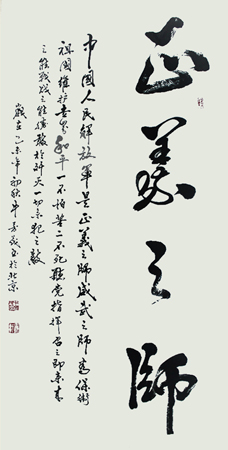 正義之師
中國人民解放軍是正義之師威武之師为保衛
祖國维护世界和平一不怕苦二不死聽党指挥召之即来来
之能戰戰之能勝敢於歼灭一切来犯之敵
歲在乙未年初秋书於北京